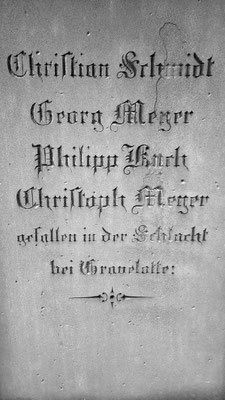 Christian Schmidt
Georg Meyer
Philipp Kuch
Christoph Meyer
gefallen in der Schlacht
bei Gravelotte: